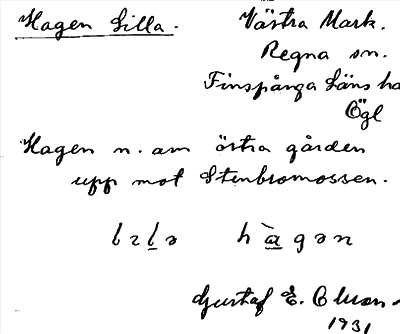 Hagen Lilla.
Västra Mark.
Regna sn.
Finspånga Läns hd
Ögl
Hagen n. am östra gården
upp mot Stenbromossen.
hàgən
Gustaf E. Olsson
1931